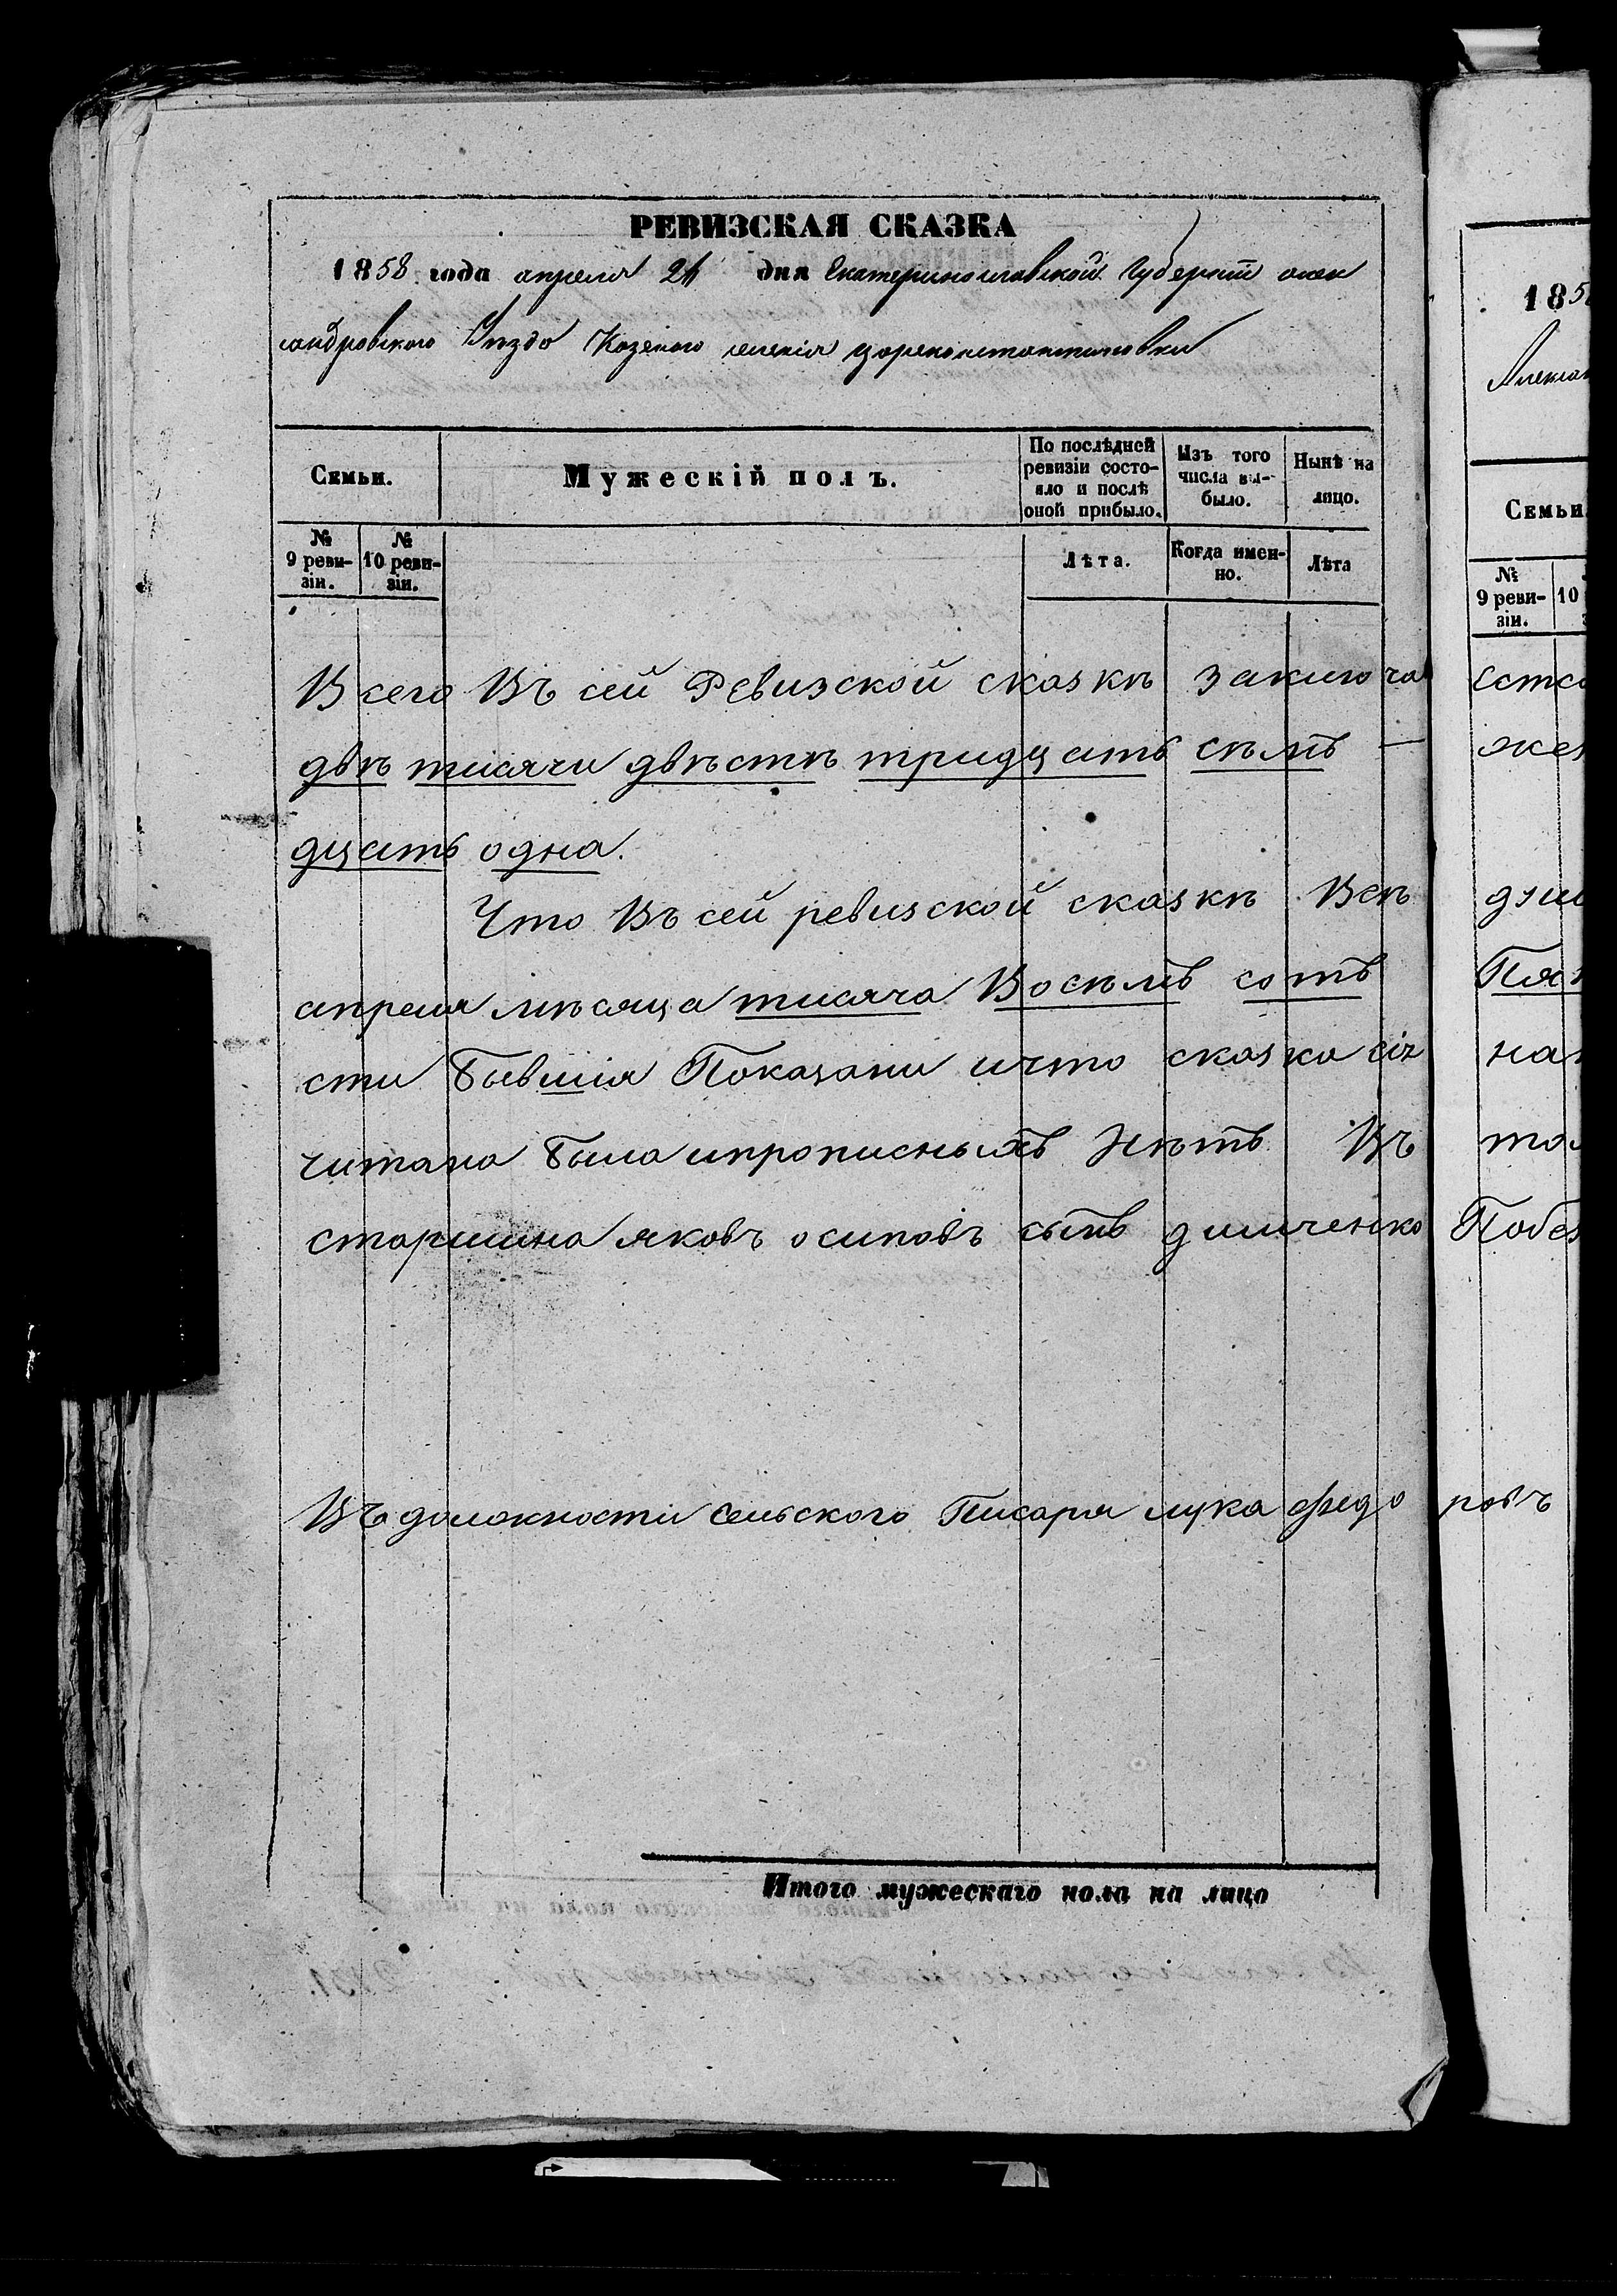 РЕВИЗСКАЯ СКАЗКА
1858 года апреля 24 дня Екатеринославской Губернiи алек
сандровского Уѣзда Казеного селенiя цареконстантиновки
Семьи.
Мужескiй полъ.
По послѣдней ревизiи состояло и послѣ оной прибыло.
Изъ того числа вы-было.
Нынѣ на лицо.
№ 9 реви-зiи.
№ 10 реви-зiи.
Лѣта.
Когда имен-но.
Лѣта
Всего Въ сей Ревизской сказкѣ заключа
двѣ тисячи двѣстѣ тридцать сѣмъ —
дцать одна.
Что Въ сей ревизской сказкѣ Всѣ
апреля мѣсяца тисяча Восѣмъ сотъ
сти Бывшiя Показани ичто сказка сiя
читана была ипрописныхъ Нѣтъ Въ
старшина яковъ осиповъ сынъ
Въ должности сельского Писаря лука федо ровъ
Итого мужескаго пола на лицо
185
Алексан
Семьи
№ 9 реви-зiи.
10
жен
душ
Пят